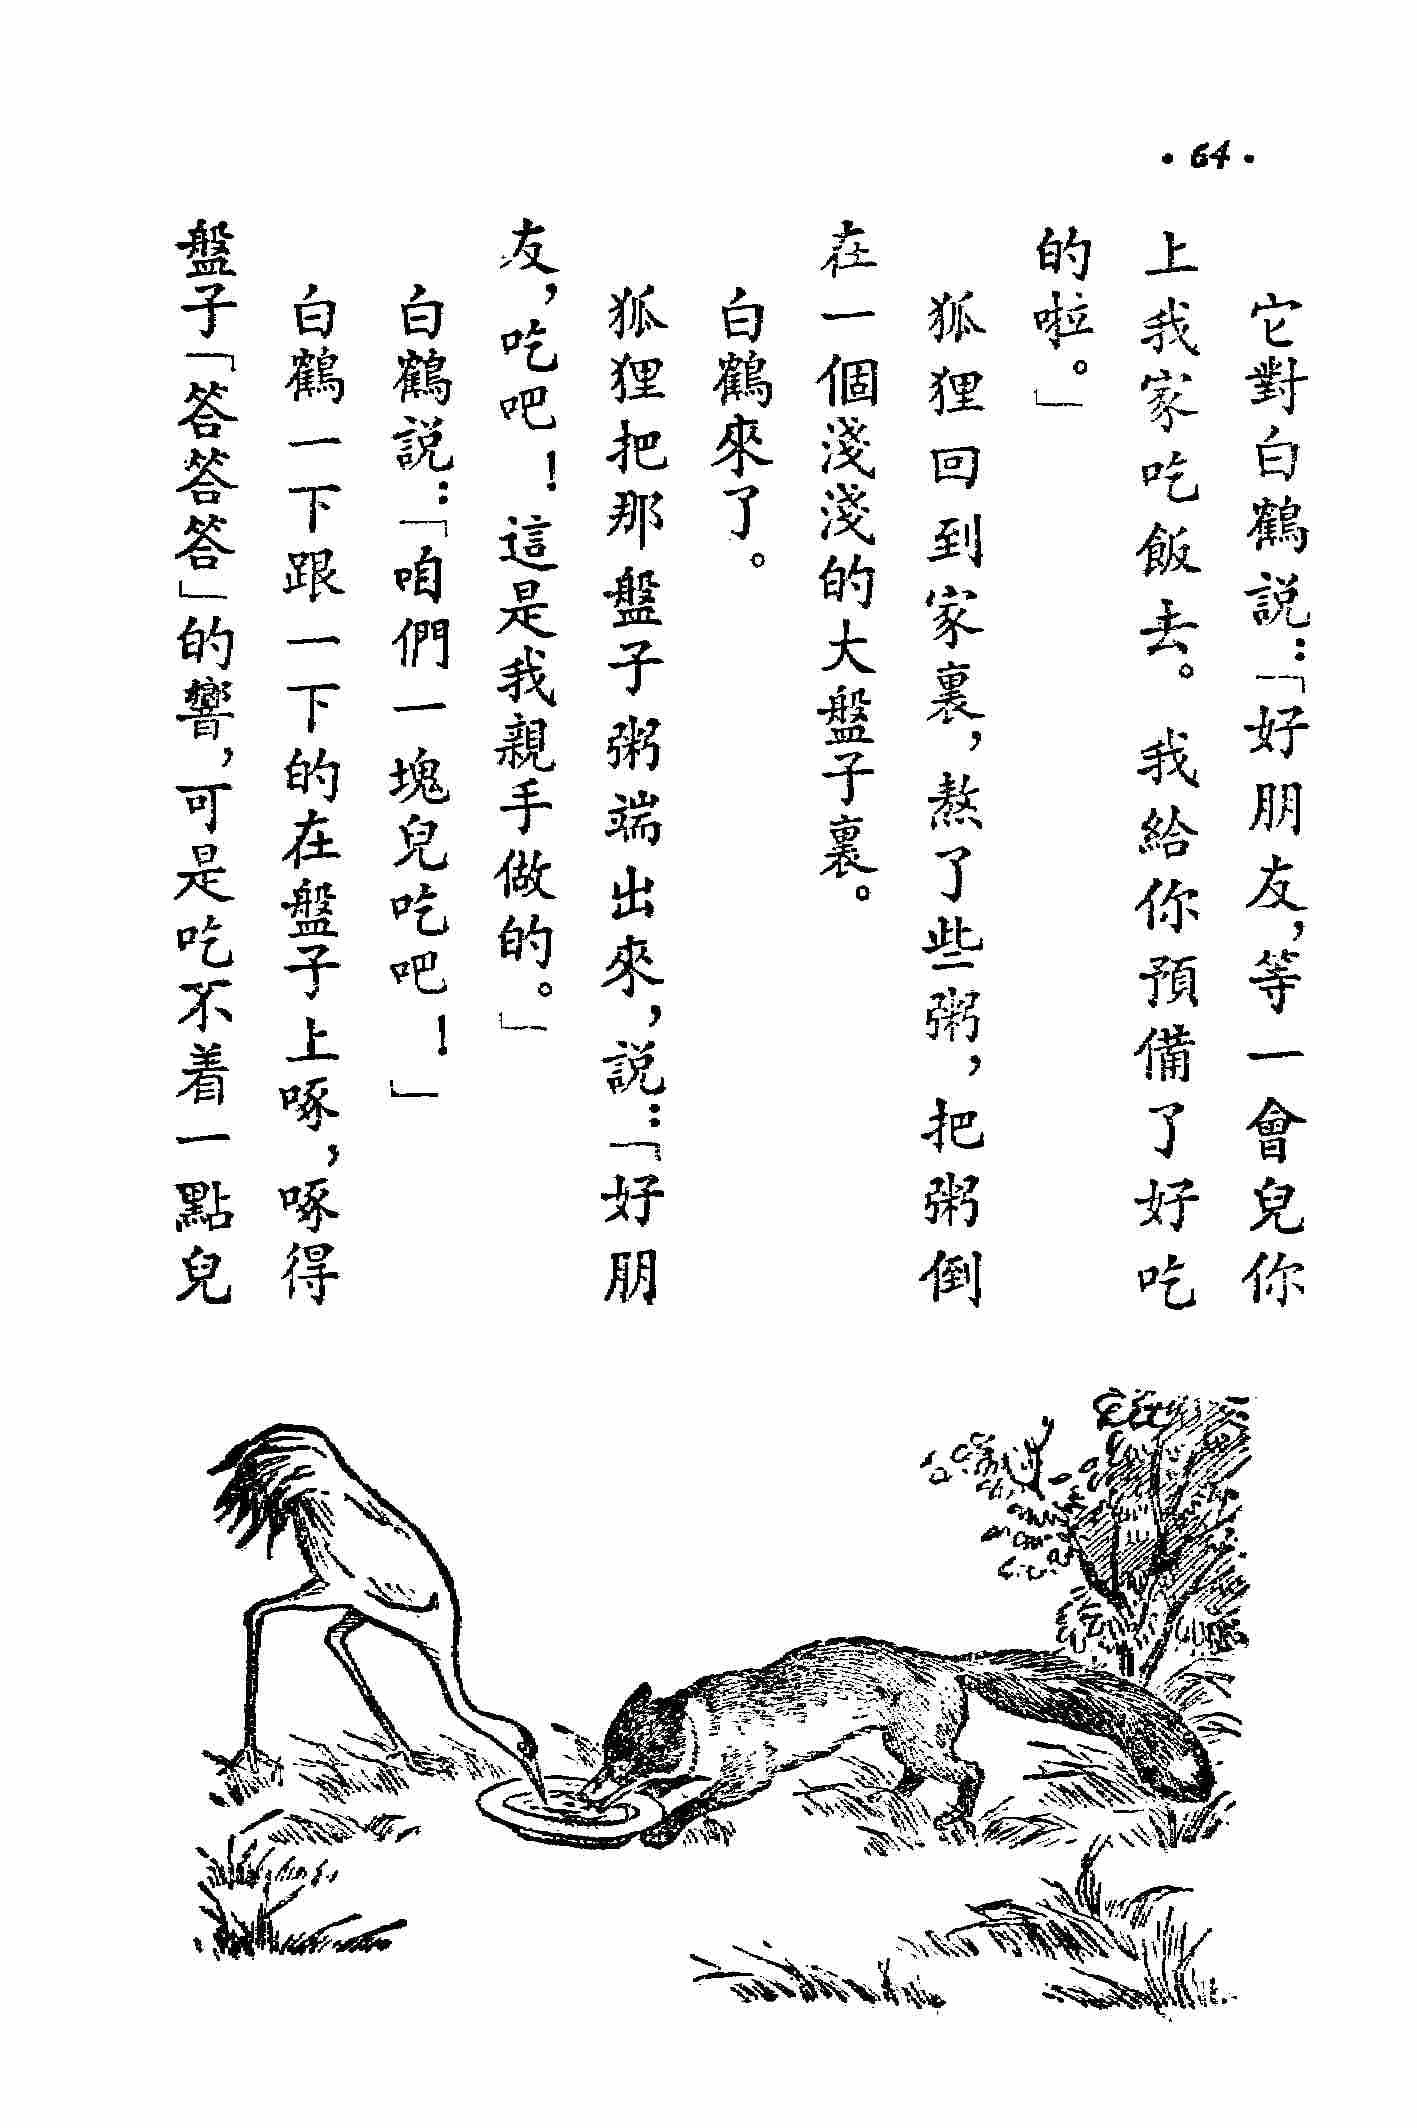 ·64·
它對白鶴説：「好朋友，等一會兒你
上我家吃飯去。我給你預備了好吃
的啦。」
狐狸回到家裏，熬了些粥，把粥倒
在一個淺淺的大盤子裏。
白鶴來了。
狐狸把那盤子粥端出來，説：「好朋
友，吃吧！這是我親手做的。」
白鶴説：「咱們一塊兒吃吧！」
白鶴一下跟一下的在盤子上啄，啄得
盤子「答答答」的響，可是吃不着一點兒